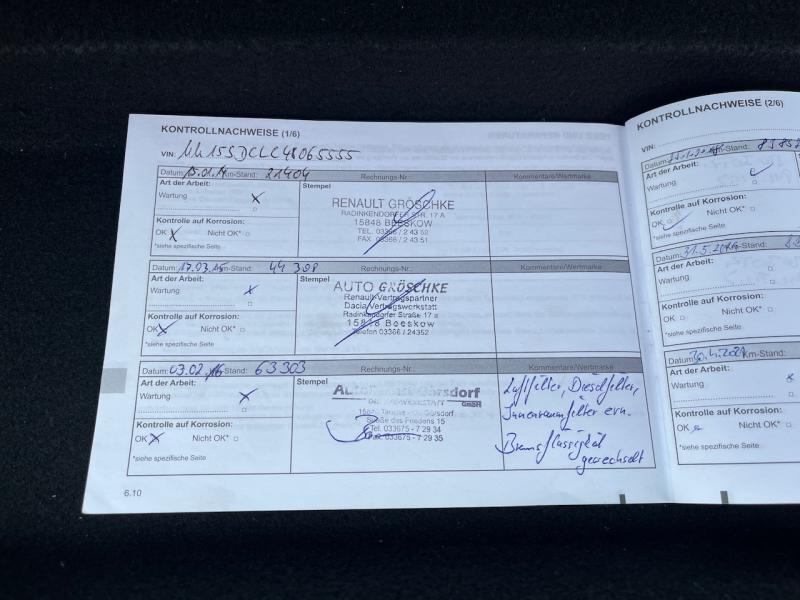 KONTROLLNACHWEISE (1/6)
VIN:
Datum: 15.01.14 Km-Stand: 21404 Rechnungs-Nr.: Kommentare/Wertmarke
Art der Arbeit:
Wartung X
Stempel
RENAULT GRÖSCHKE
RADINKENDORFER STR. 17 A
15848 BEESKOW
TEL. 03366 / 2 43 52
FAX 03366 / 2 43 51
Kontrolle auf Korrosion:
OK X Nicht OK*
*siehe spezifische Seite
Datum: 17.03.15 Km-Stand: 44 398 Rechnungs-Nr.: Kommentare/Wertmarke
Art der Arbeit:
Wartung X
Stempel
AUTO GRÖSCHKE
Renault-Vertragspartner
Dacia-Vertragswerkstatt
Radinkendorfer Straße 17 a
15848 Beeskow
Telefon 03366 / 24352
Kontrolle auf Korrosion:
OK X Nicht OK*
*siehe spezifische Seite
Datum: 03.02.16 Km-Stand: 63303 Rechnungs-Nr.: Kommentare/Wertmarke
Art der Arbeit:
Wartung X
Stempel
GmbH
Straße des Friedens 15
Tel. 033675 - 7 29 34
033675 - 7 29 35
Luftfilter, Dieselfilter,
Innenraumfilter ern.
Bremsflüssigkeit
gewechselt
Kontrolle auf Korrosion:
OK X Nicht OK*
*siehe spezifische Seite
6.10
KONTROLLNACHWEISE (2/6)
VIN:
Datum: Km-Stand:
Art der Arbeit:
Wartung
Kontrolle auf Korrosion:
OK Nicht OK*
*siehe spezifische Seite
Datum: 31.5. Km-Stand:
Art der Arbeit:
Wartung
Kontrolle auf Korrosion:
OK Nicht OK*
*siehe spezifische Seite
Datum: 30.4.2021 Km-Stand:
Art der Arbeit:
Wartung
Kontrolle auf Korrosion:
OK Nicht OK*
*siehe spezifische Seite